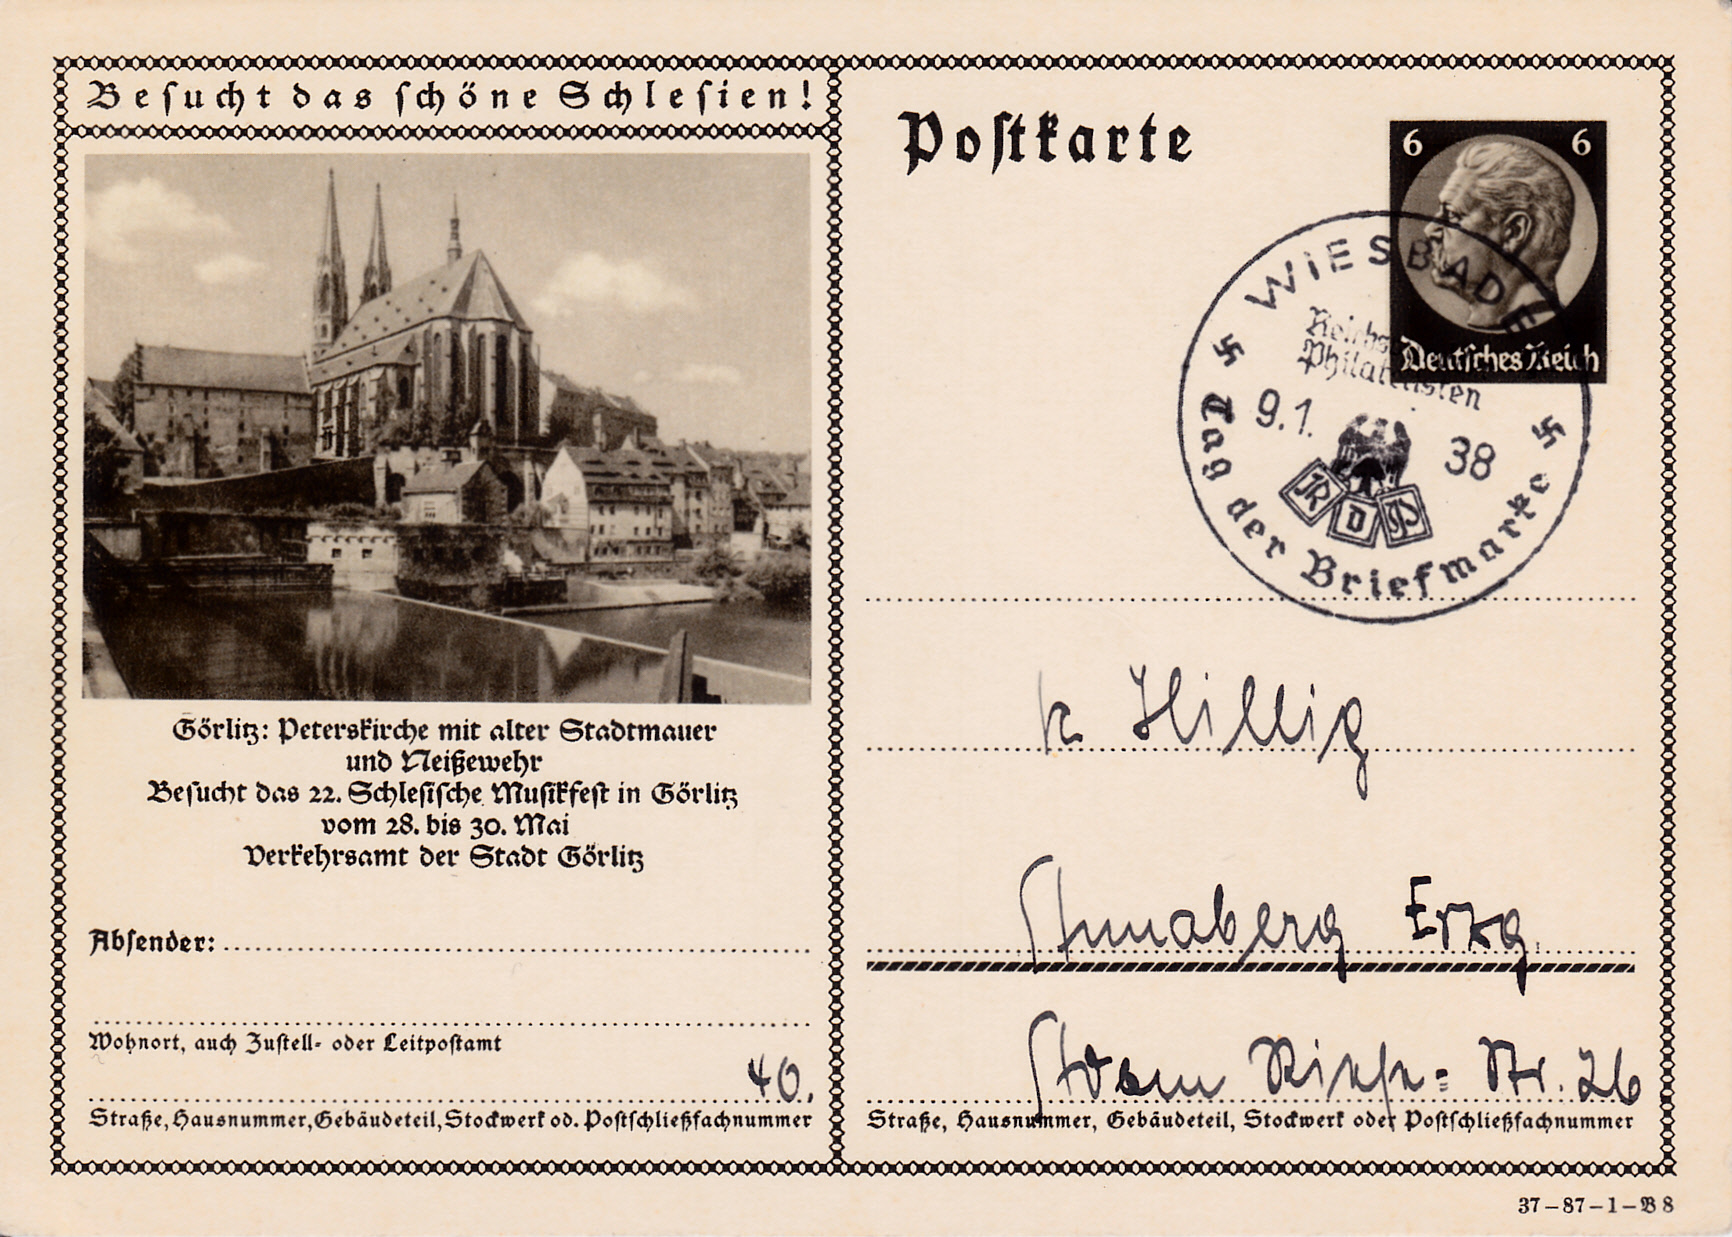 Besucht das schöne Schlesien!
Görlitz: Peterskirche mit alter Stadtmauer
und Neißewehr
Besucht das 22. Schlesische Musikfest in Görlitz
vom 28. bis 30. Mai
Verkehrsamt der Stadt Görlitz
Absender:
Wohnort, auch Zustell- oder Leitpostamt
40.
Straße, Hausnummer, Gebäudeteil, Stockwerk od. Postschließfachnummer
Postkarte
6 6
Deutsches Reich
WIESBADE
Philatelisten
9.1. 38
JR D GS
Tag der Briefmarke
Hillig
Annaberg Erzg.
Adam Ries-Str. 26
Straße, Hausnummer, Gebäudeteil, Stockwerk oder Postschließfachnummer
37-87-1-B 8